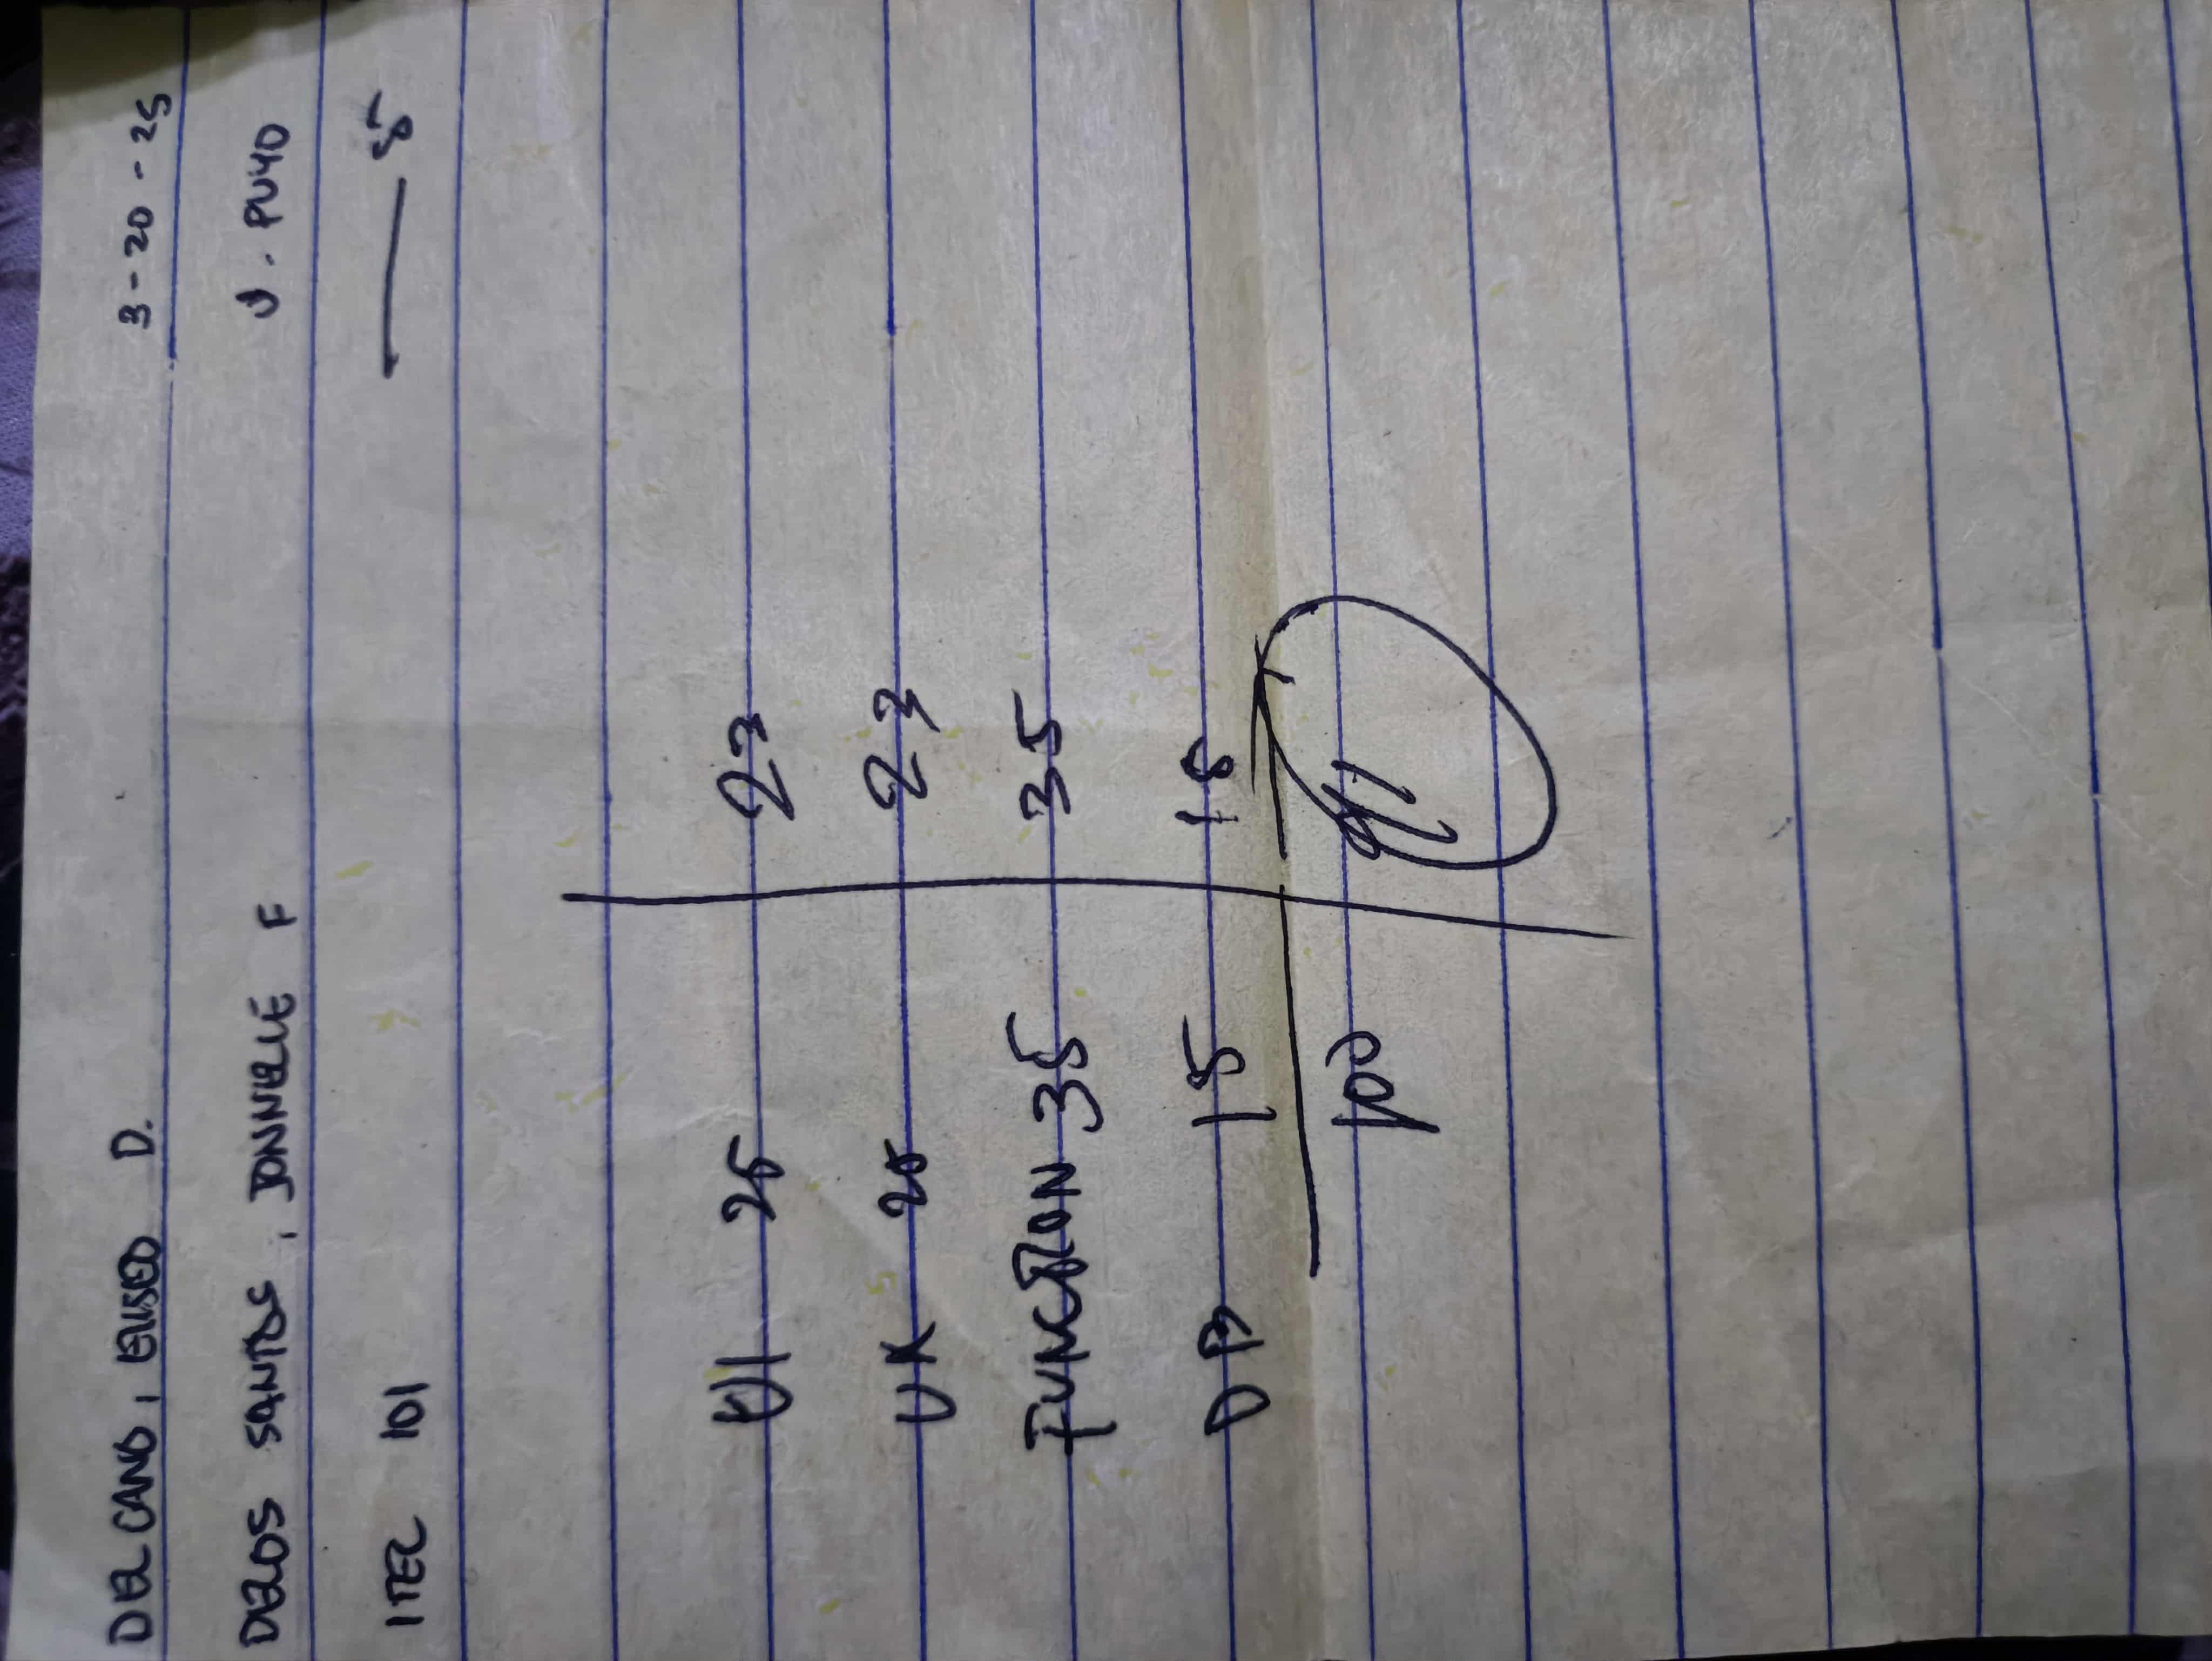 DEL CANO, ELISEO D. 3-20-25
DELOS SANTOS, JONNELLE F J. PUYO
ITEC 101
UI 25 23
UX 25 23
FUNCTION 35 35
DB 15 15
100